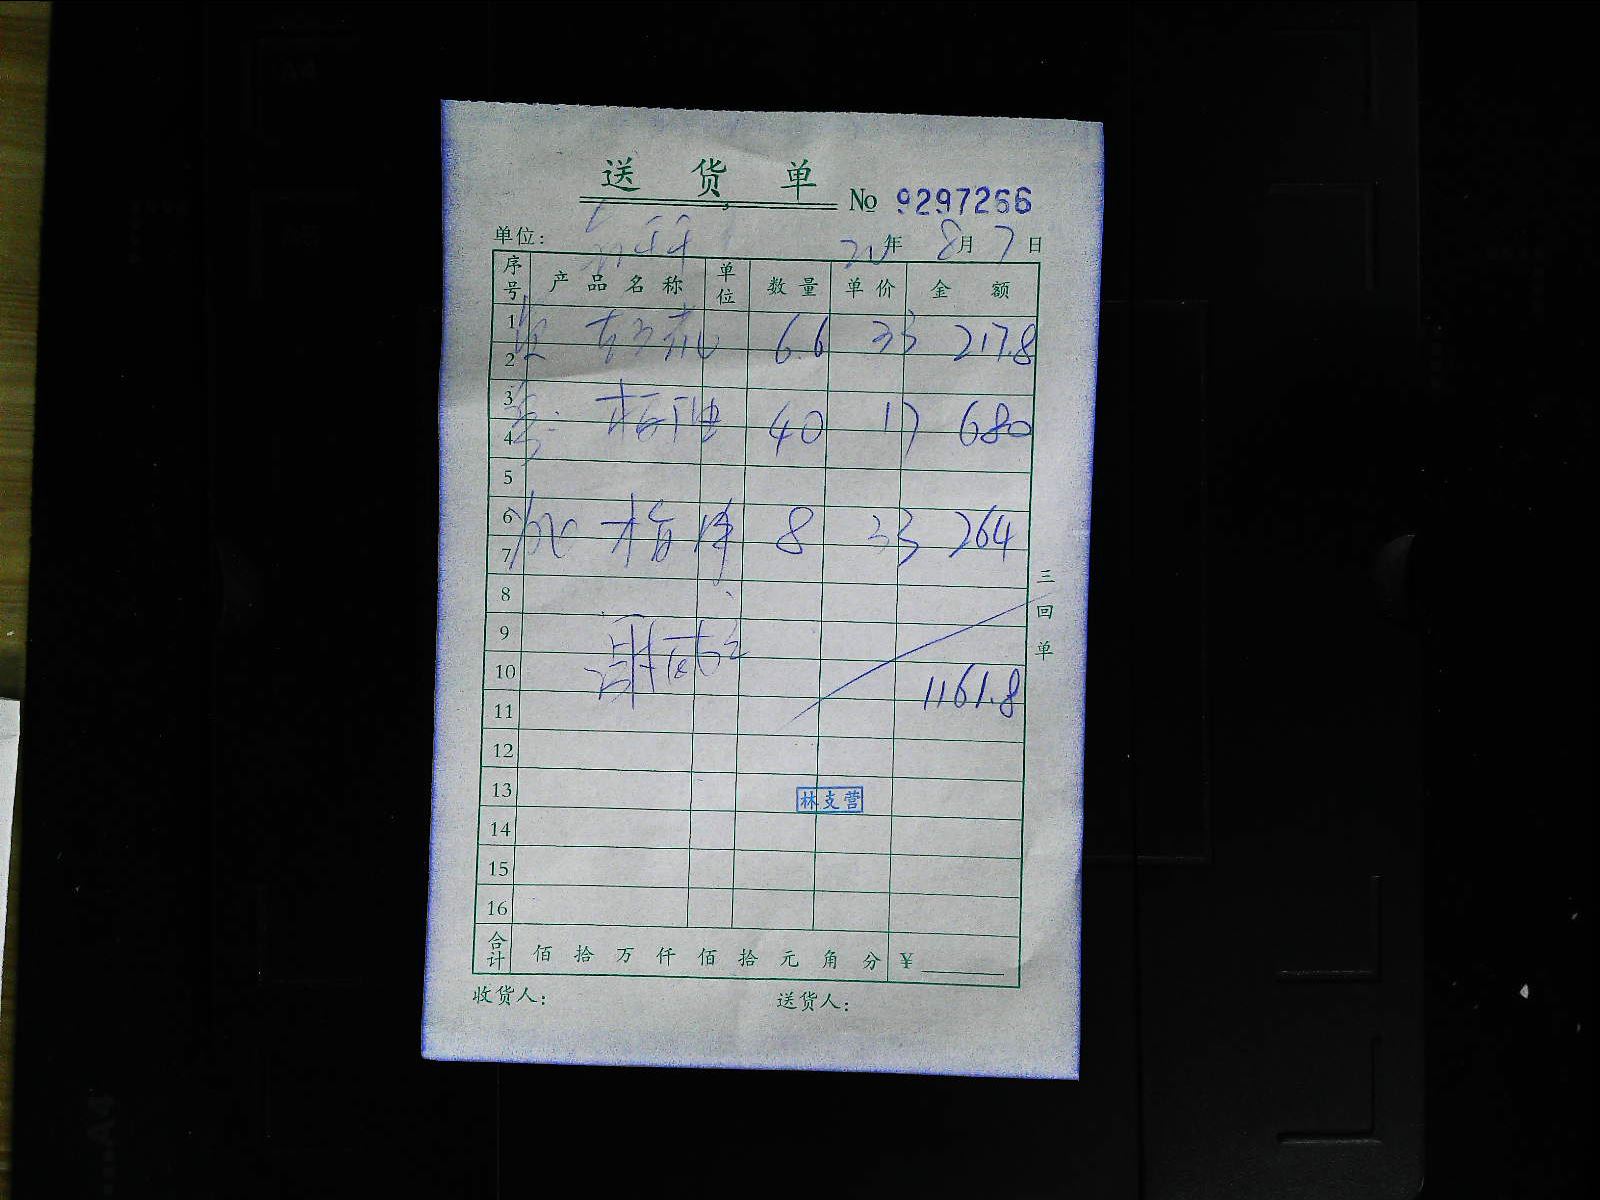 送货单
№ 9297266
单位： 20年8月7日
序号 产品名称 单位 数量 单价 金额
1 6.6 33 217.8
2
3 40 17 680
4
5
6 8 33 264
7
8
9
10 1161.8
11
12
13 林支营
14
15
16
合计 佰拾万仟佰拾元角分 ¥
收货人： 送货人：
三回单